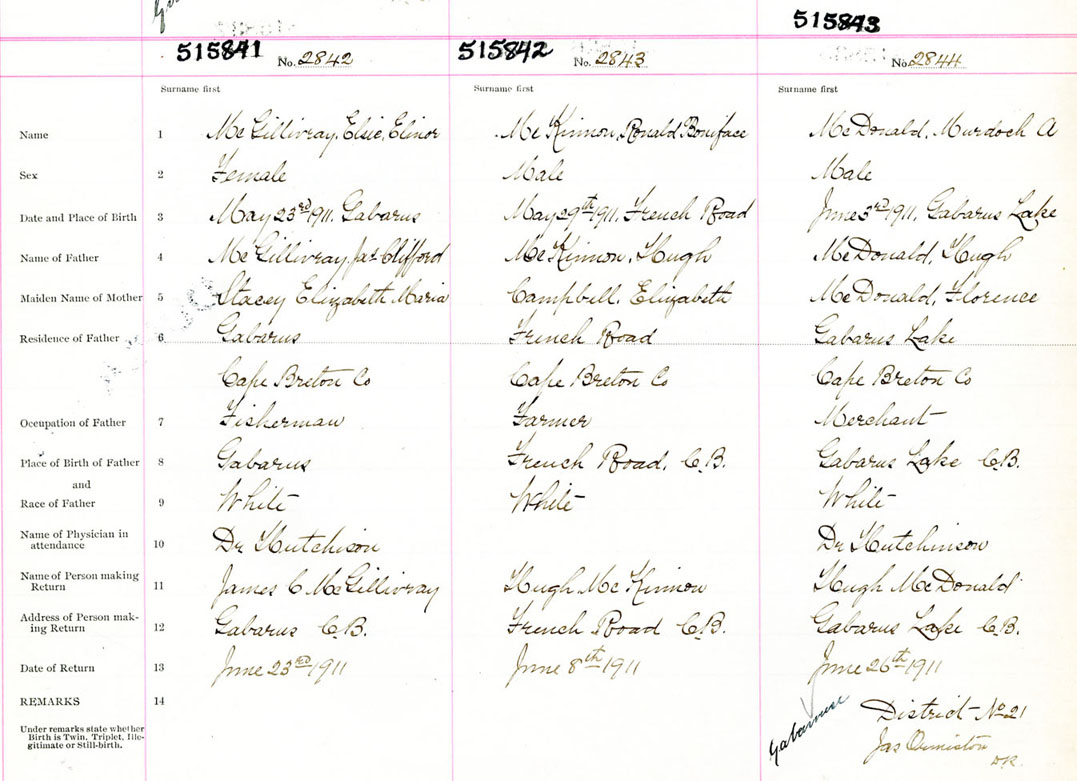 515843
515841 No. 2842 515842 No. 2843 No. 2844
Surname first Surname first Surname first
Name 1 McGillivray, Elsie, Elinor McKinnon, Ronald Boniface McDonald, Murdoch A
Sex 2 Female Male Male
Date and Place of Birth 3 May 23rd 1911. Gabarus May 29th 1911, French Road June 3rd 1911, Gabarus Lake
Name of Father 4 McGillivray, Jas Clifford McKinnon, Hugh McDonald, Hugh
Maiden Name of Mother 5 Stacey Elizabeth Maria Campbell, Elizabeth McDonald, Florence
Residence of Father 6 Gabarus French Road Gabarus Lake
Cape Breton Co Cape Breton Co Cape Breton Co
Occupation of Father 7 Fisherman Farmer Merchant
Place of Birth of Father 8 Gabarus French Road, C.B. Gabarus Lake C.B.
and
Race of Father 9 White White White
Name of Physician in
attendance 10 Dr Hutchison Dr Hutchinson
Name of Person making
Return 11 James C McGillivray Hugh McKinnon Hugh McDonald
Address of Person mak-
ing Return 12 Gabarus C.B. French Road C.B. Gabarus Lake C.B.
Date of Return 13 June 23rd 1911 June 8th 1911 June 26th 1911
REMARKS 14
Under remarks state whether
Birth is Twin, Triplet, Ille-
gitimate or Still-birth.
District No 21
Jas Ormiston
DR.